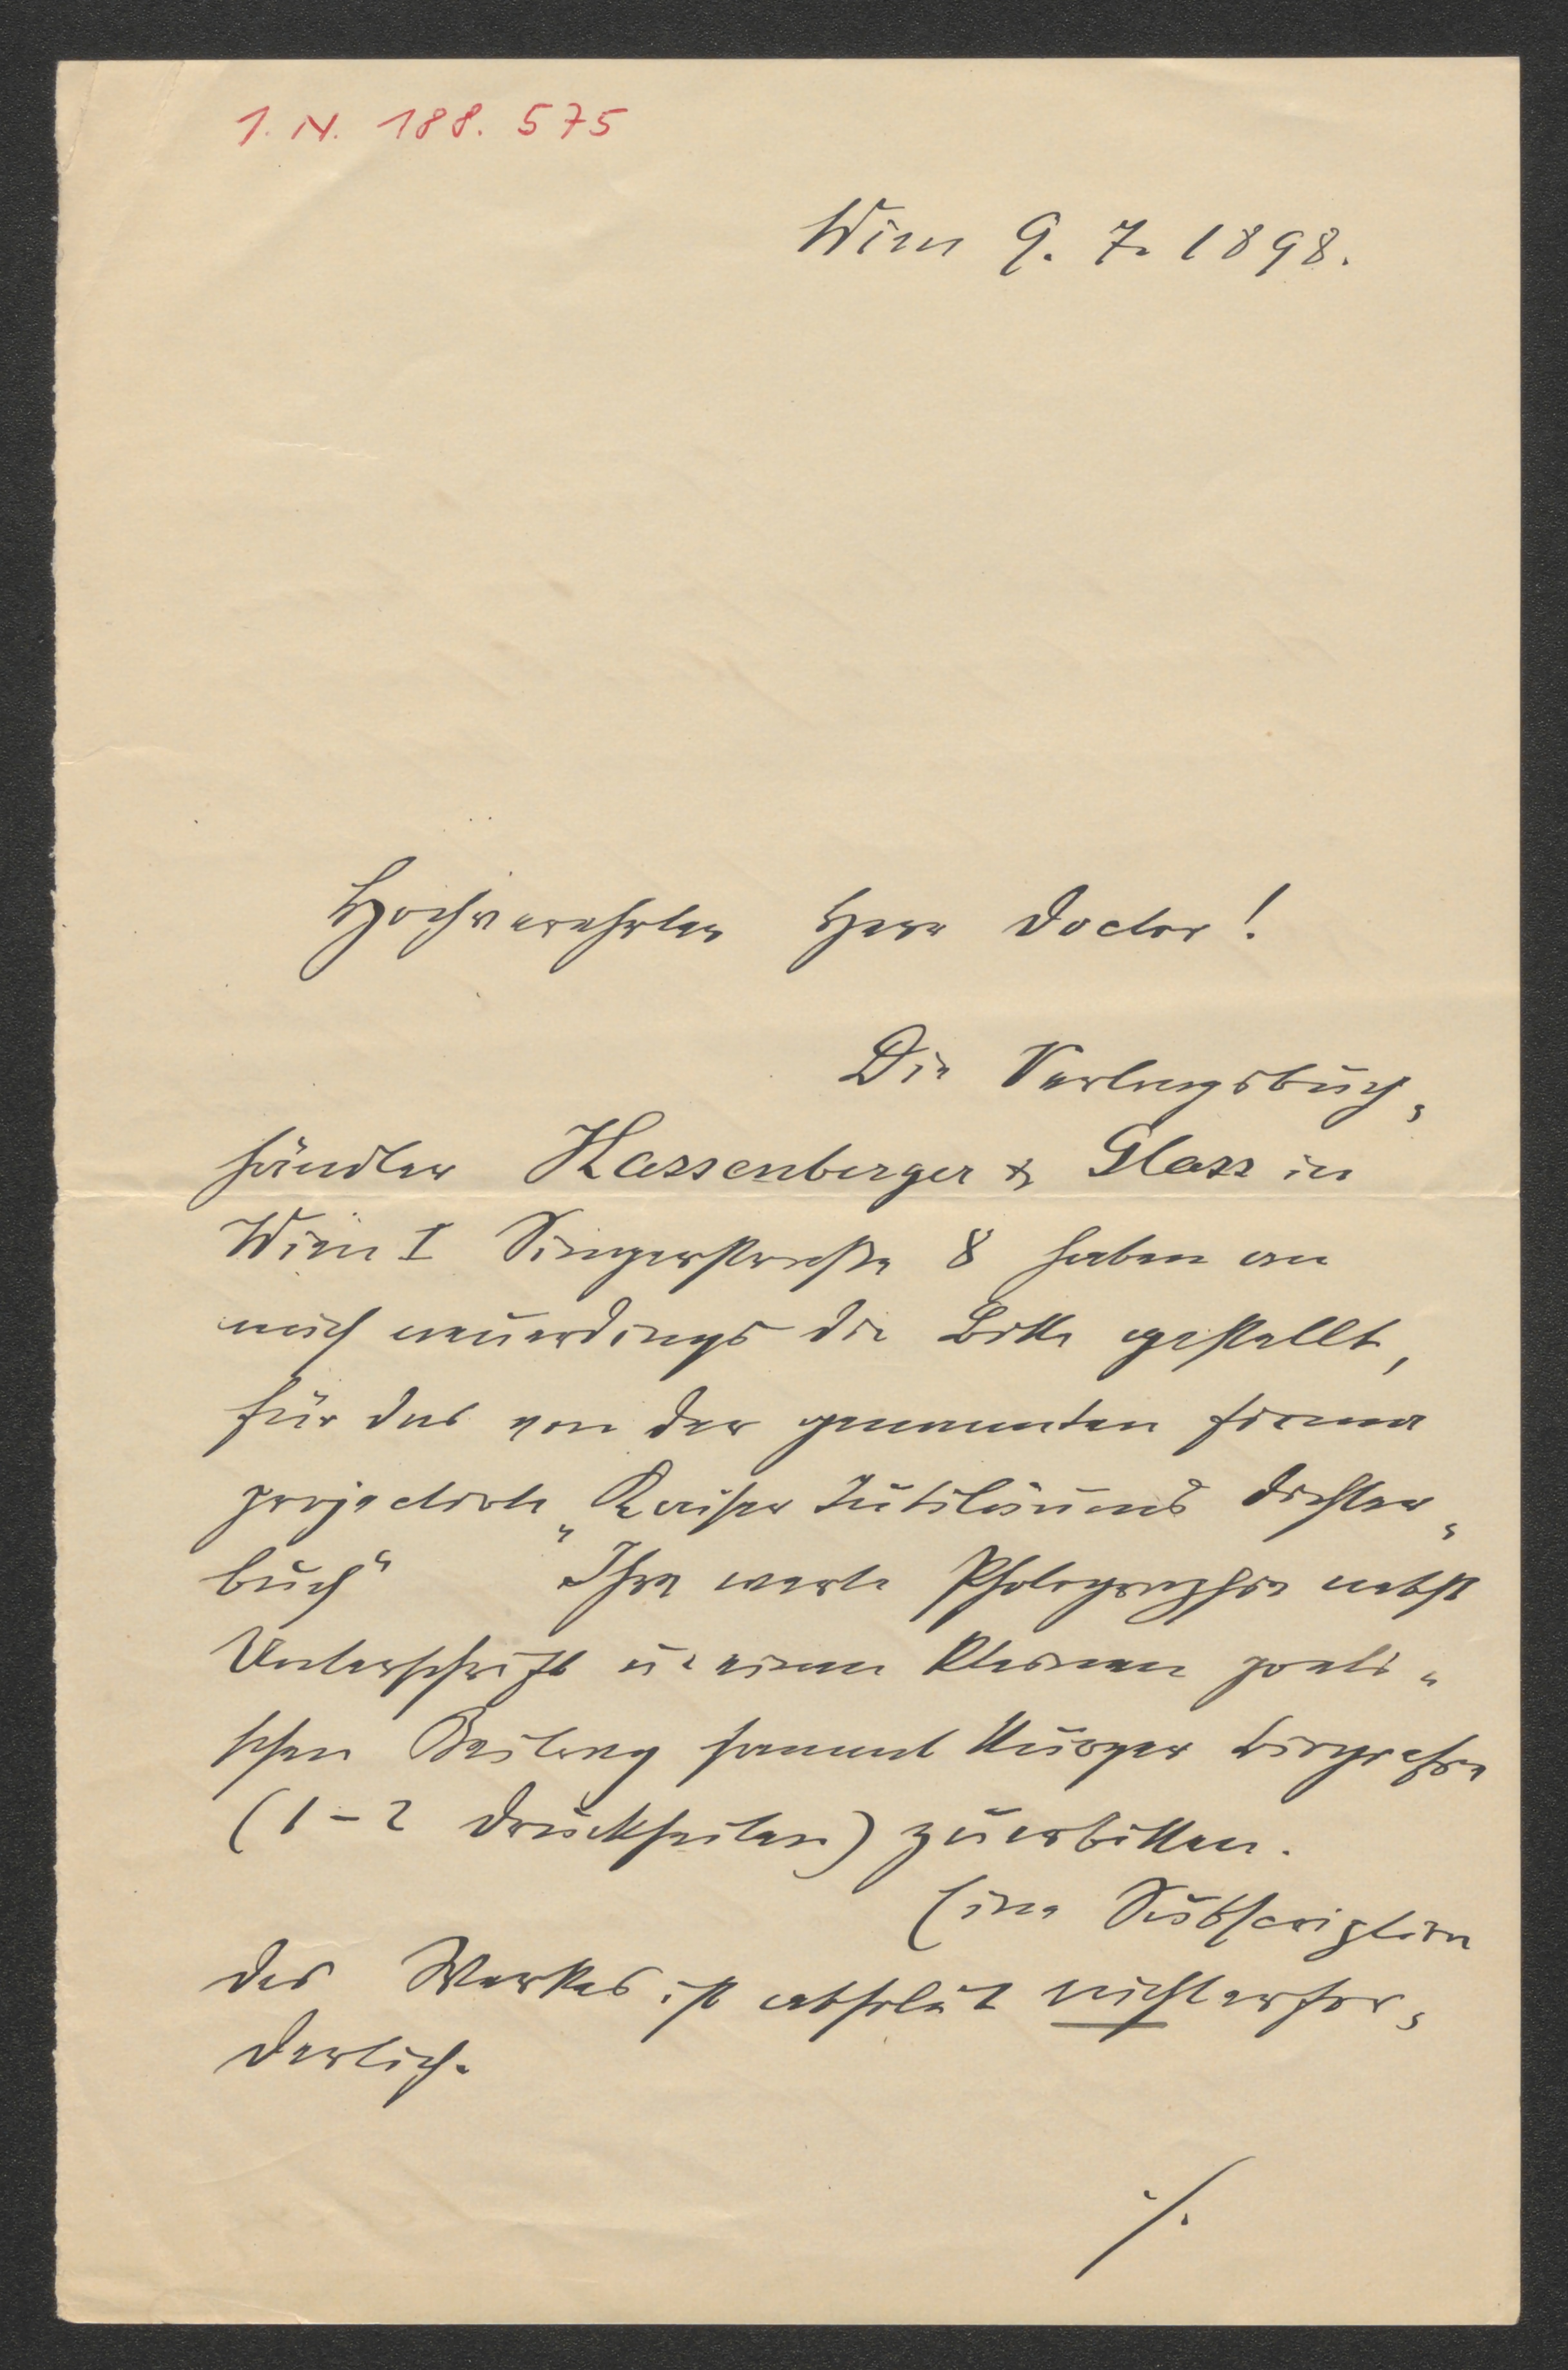 I. N. 188.575
Wien 9. 7. 1898.
Hochverehrter Herr Doctor!
Die Verlagsbuch-
händler Hassenberger & Glass in
Wien I Singerstraße 8 haben an
mich neuerdings die Bitte gestellt,
für das von der genannten Firma
projectirte „Kaiser Jubiläums Dichter-
buch“ Ihre werte Photographie nebst
Unterschrift u. einen kleinen poeti-
schen Beitrag sammt kurzer Biografie
(1-2 Druckseiten) zu erbitten.
Eine Subscription
des Werkes ist absolut nicht erfor-
derlich.
./.